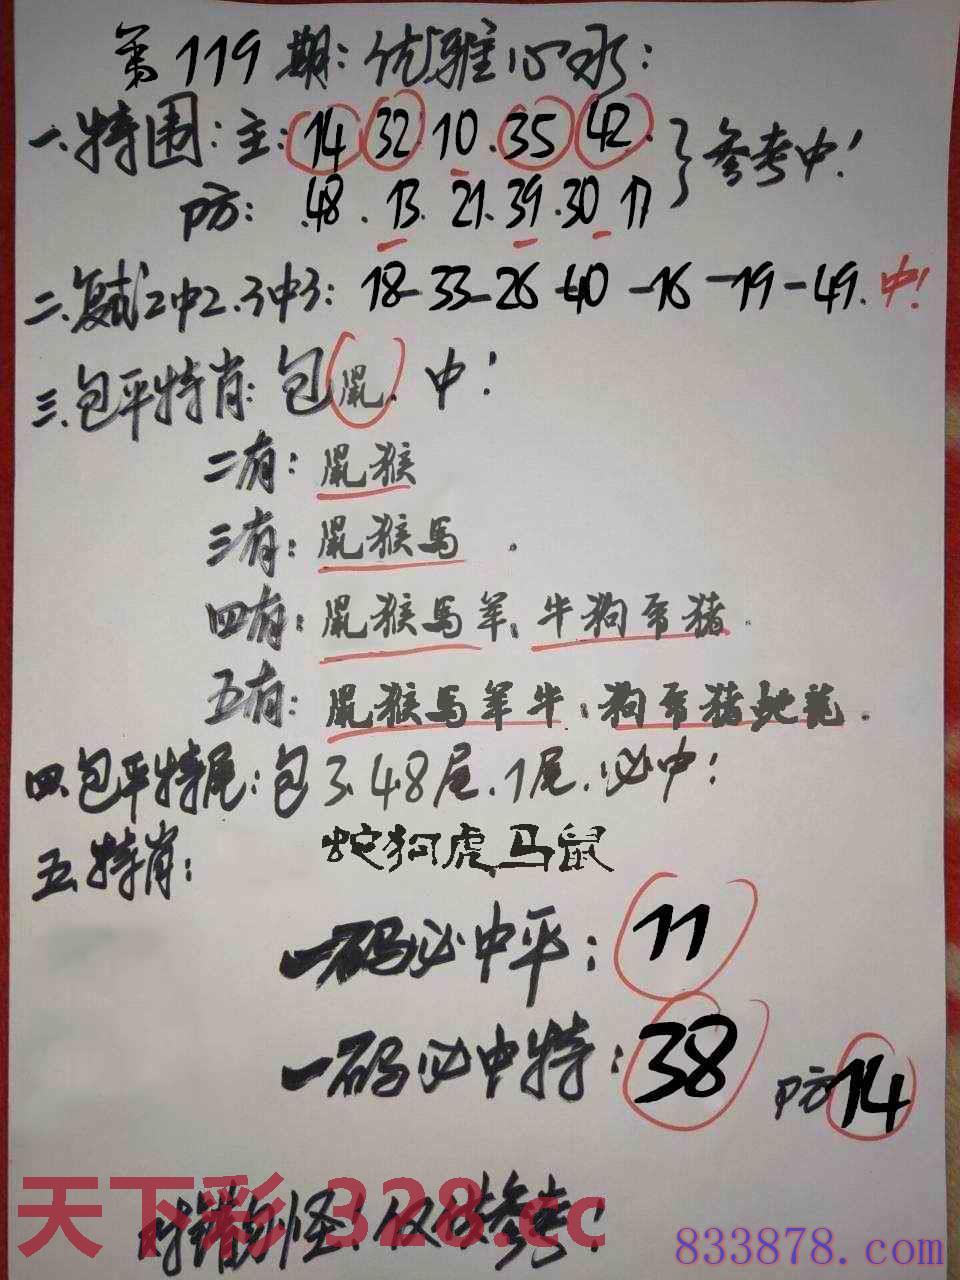 第119期：优雅心水：
一.特围：主：14 32 10.35 42.
参考中！
防：48.13.21.39.30 17
二.复试2中2.3中3：18-33-26-40-16-19-49.中！
三.包平特肖：包鼠.中！
二有：鼠猴
三有：鼠猴马.
四有：鼠猴马羊、牛狗兔猪.
五有：鼠猴马羊牛：狗兔猪蛇龙.
四.包平特尾：包3.48尾.1尾.必中！
五.特肖： 蛇狗虎马鼠
一码必中平：11
一码必中特：38 防14
对错勿怪！仅供参考！
天下彩 328.cc
833878.com